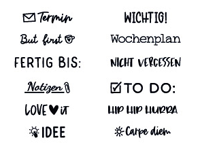 Termin
WICHTIG!
But first
Wochenplan
FERTIG BIS:
NICHT VERGESSEN
Notizen
TO DO:
LOVE it
HIP HIP HURRA
IDEE
Carpe diem